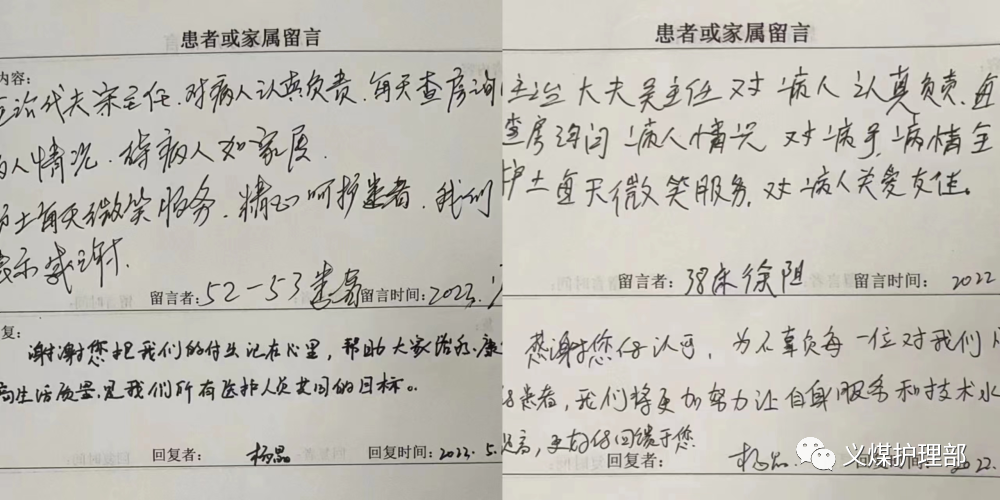 患者或家属留言
内容:
主治代夫宋主任.对病人认真负责.每天查房询
病人情况.待病人如家属.
护士每天微笑服务.精心呵护患者.我们
表示感谢.
留言者:52-53患者 留言时间:2023.
复:
谢谢您把我们的付出记在心里,帮助大家活死.康
高生活质量是我们所有医护人员共同的目标。
回复者:杨晶 回复时间:2023.5.
患者或家属留言
主治大夫吴主任对病人认真负责.每
查房询问病人情况 对病号,病情全
护士每天微笑服务,对病人关爱友佳。
留言者:38床徐阻 留言时间:2022
感谢您的认可,为不辜负每一位对我们
的患者,我们将更加努力让自身服务和技术水
提高,更好的回馈于您.
回复者:杨晶 2022.
义煤护理部